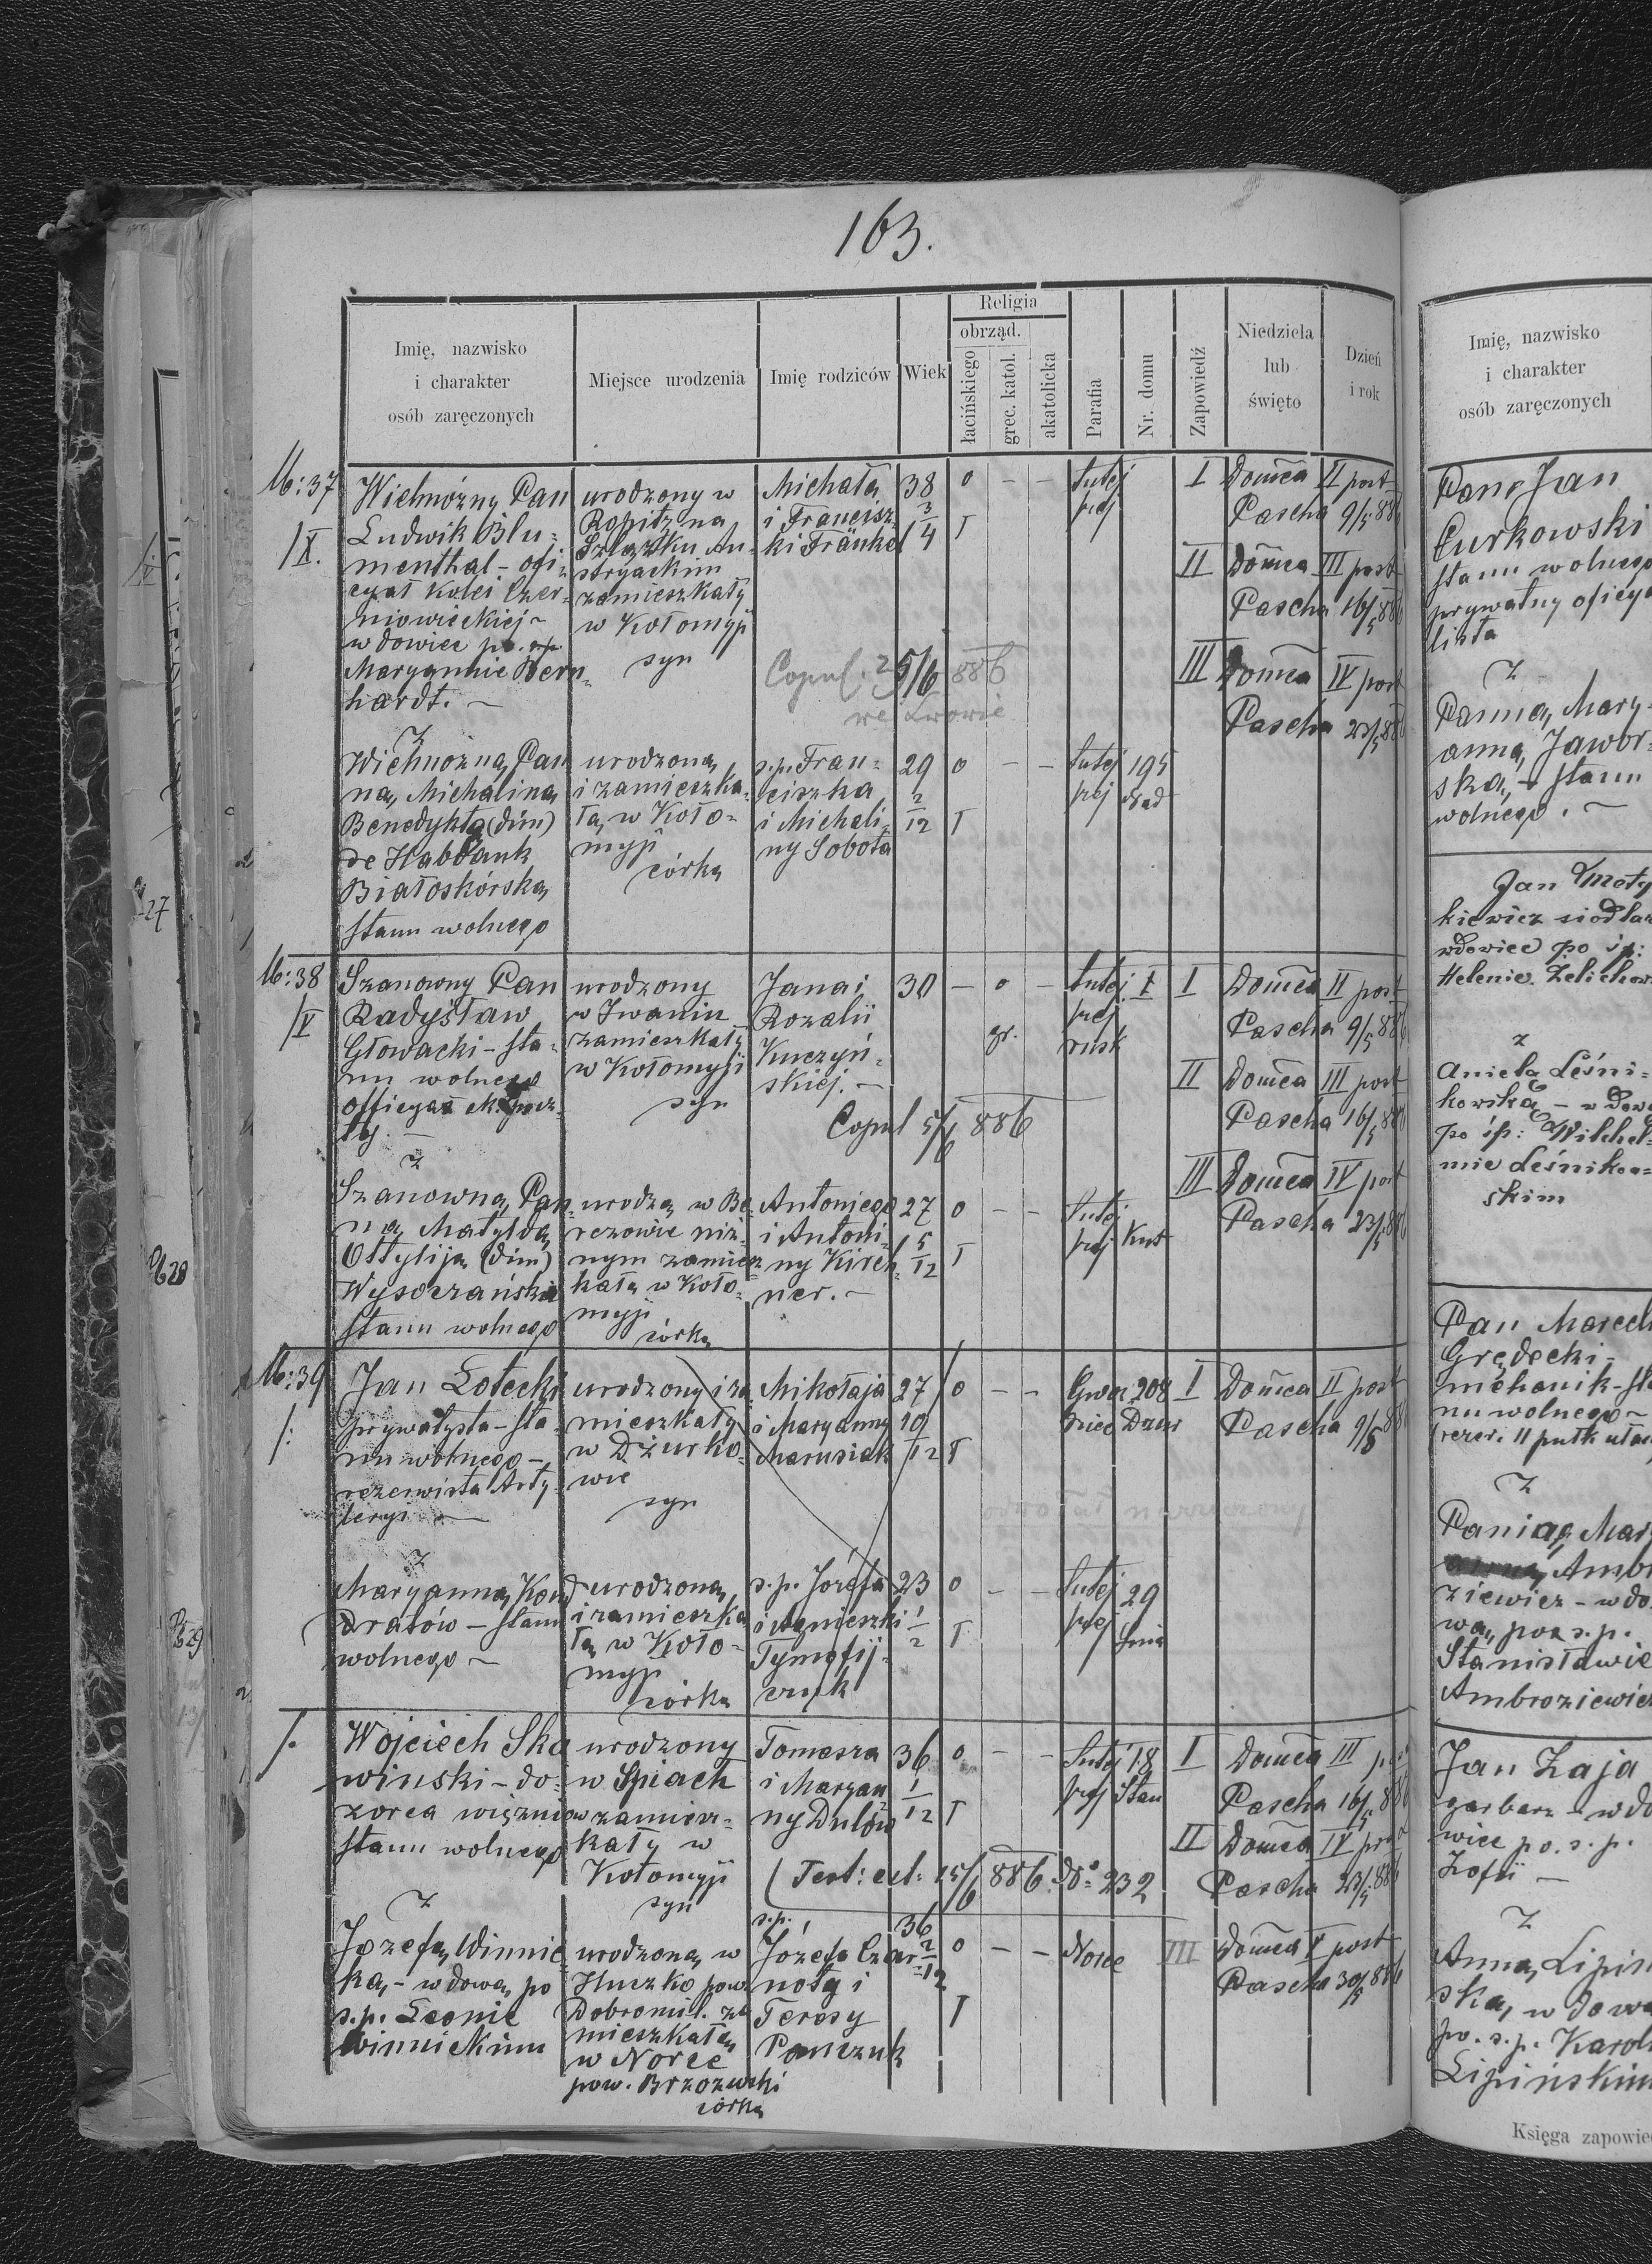 163.
Religia
obrząd.
Imię, nazwisko
i charakter
osób zaręczonych
Miejsce urodzenia
Imię rodziców
Wiek
łacińskiego
grec. katol.
akatolicka
Parafia
Nr. domu
Zapowiedź
Niedziela
lub
święto
Dzień
i rok
37
Wielmożny Pan
Ludwik Blu-
menthal - ofi-
cyał kolei Czer-
niowieckiej
wdowiec po
Maryannie Bern-
hardt.
urodzony w
na
Szląsku Au-
stryackim
zamieszkały
w Kołomyji
syn
Michała
i Francisz-
ki Fränkel
38
3
4
o - -
T
Tutej
szej
I Domca II post
Pascha 9/5 886
II Domca III post
Pascha 16/5 886
III Domca IV post
Pascha 23/5 886
Copul. 25/6 886
we Lwowie
z
Wielmożną Pan
ną Michaliną
Benedyktą (dim)
de Habdank
Białoskórską
stanu wolnego
urodzoną
i zamieszka-
łą w Koło-
myji
córką
s.p. Fran-
ciszka
i Michali-
ny Sobota
29
2
12
o - -
T
Tutej
szej
195
Nad
38
Szanowny Pan
Władysław
Głowacki - sta-
nu wolnego
urodzony
w Iwaniu
zamieszkały
w Kołomyji
syn
Jana i
Rozalii
Kuczyń-
skiej.
30
- o -
gr.
Tutej
szej
rusk
I
I Domca II post
Pascha 9/5 886
II Domca III post
Pascha 16/5 886
III Domca IV post
Pascha 23/5 886
Copul 5/6 886
z
Szanowną Pan-
ną Matyldą
Ottyliją (dim)
Wysoczańską
stanu wolnego
urodzą w Be-
rezowie niż-
nym zamiesz
kałą w Koło-
myji
córką
Antoniego
i Antoni-
ny Kirch-
ner.
27
5
12
o - -
T
Tutej
szej
Kut
39
Jan Łotecki
prywatysta - sta-
nu wolnego -
rezerwista Arty-
leryi
urodzony i za
mieszkały
w Dżurko-
wie
syn
Mikołaja
i Maryanny
Marusiak
27
10
12
o - -
T
Gwoź
dziec
208
Dżur
I Domca II post
Pascha 9/5 886
odwołał narzeczony
z
Maryanną Kon
dratów - stanu
wolnego
urodzoną
i zamieszka
łą w Koło-
myji
córką
s.p. Józefa
i Agnieszki
Tymofij-
czuk
23
1
2
o - -
T
Tutej
szej
29
Śnia
Wojciech Ska
winski - do-
zorca więzniów
stanu wolnego
urodzony
w Spiach
zamiesz-
kały w
Kołomyji
syn
Tomasza
i Maryan
ny Dulów
36
1
12
o - -
T
Tutej
szej
18
Stan
I Domca III
Pascha 16/5 886
II Domca IV post
Pascha 23/5 886
III Domca V post
Pascha 30/5 886
(Test: ext: 15/6 886. No 232
z
Józefą Winnic
ką - wdową po
s.p. Leonie
Winnickim
urodzoną w
Huczko pow.
Dobromil. za
mieszkałą
w Norce
pow. Brzozowski
córką
s.p.
Józefa Czar-
noty i
Teresy
Panczuk
36
2
12
o - -
T
Norce
Imię, nazwisko
i charakter
osób zaręczonych
Pan Jan
Curkowski
stanu wolnego
prywatny oficya
lista
z
Panną Mary-
anną Jawor-
ską - stanu
wolnego.
Jan Moty
kiewicz siodlar
wdowiec po śp:
Helenie
z
Aniela Leśni-
kowska - wdow
po śp: Wilhel-
mie Leśnikow-
skim
Pan
Grędecki -
mechanik - sta
nu wolnego -
rezer. 11 pułk ułan
z
Panią Mar
Ambro
ziewicz - wdo
wą po s.p.
Stanisławie
Ambroziewicz
Jan Zaja
garbarz - wdo
wiec po s.p.
Zofii
z
Anną Lipiń
ską, wdową
po s.p. Karolu
Lipińskim
Księga zapowied
27
28
29